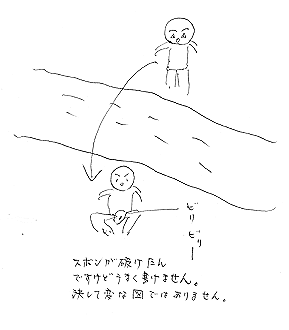 ビリ
ビリー
ズボンが破けたん
ですけどうまく書けません。
決して変な図ではありません。